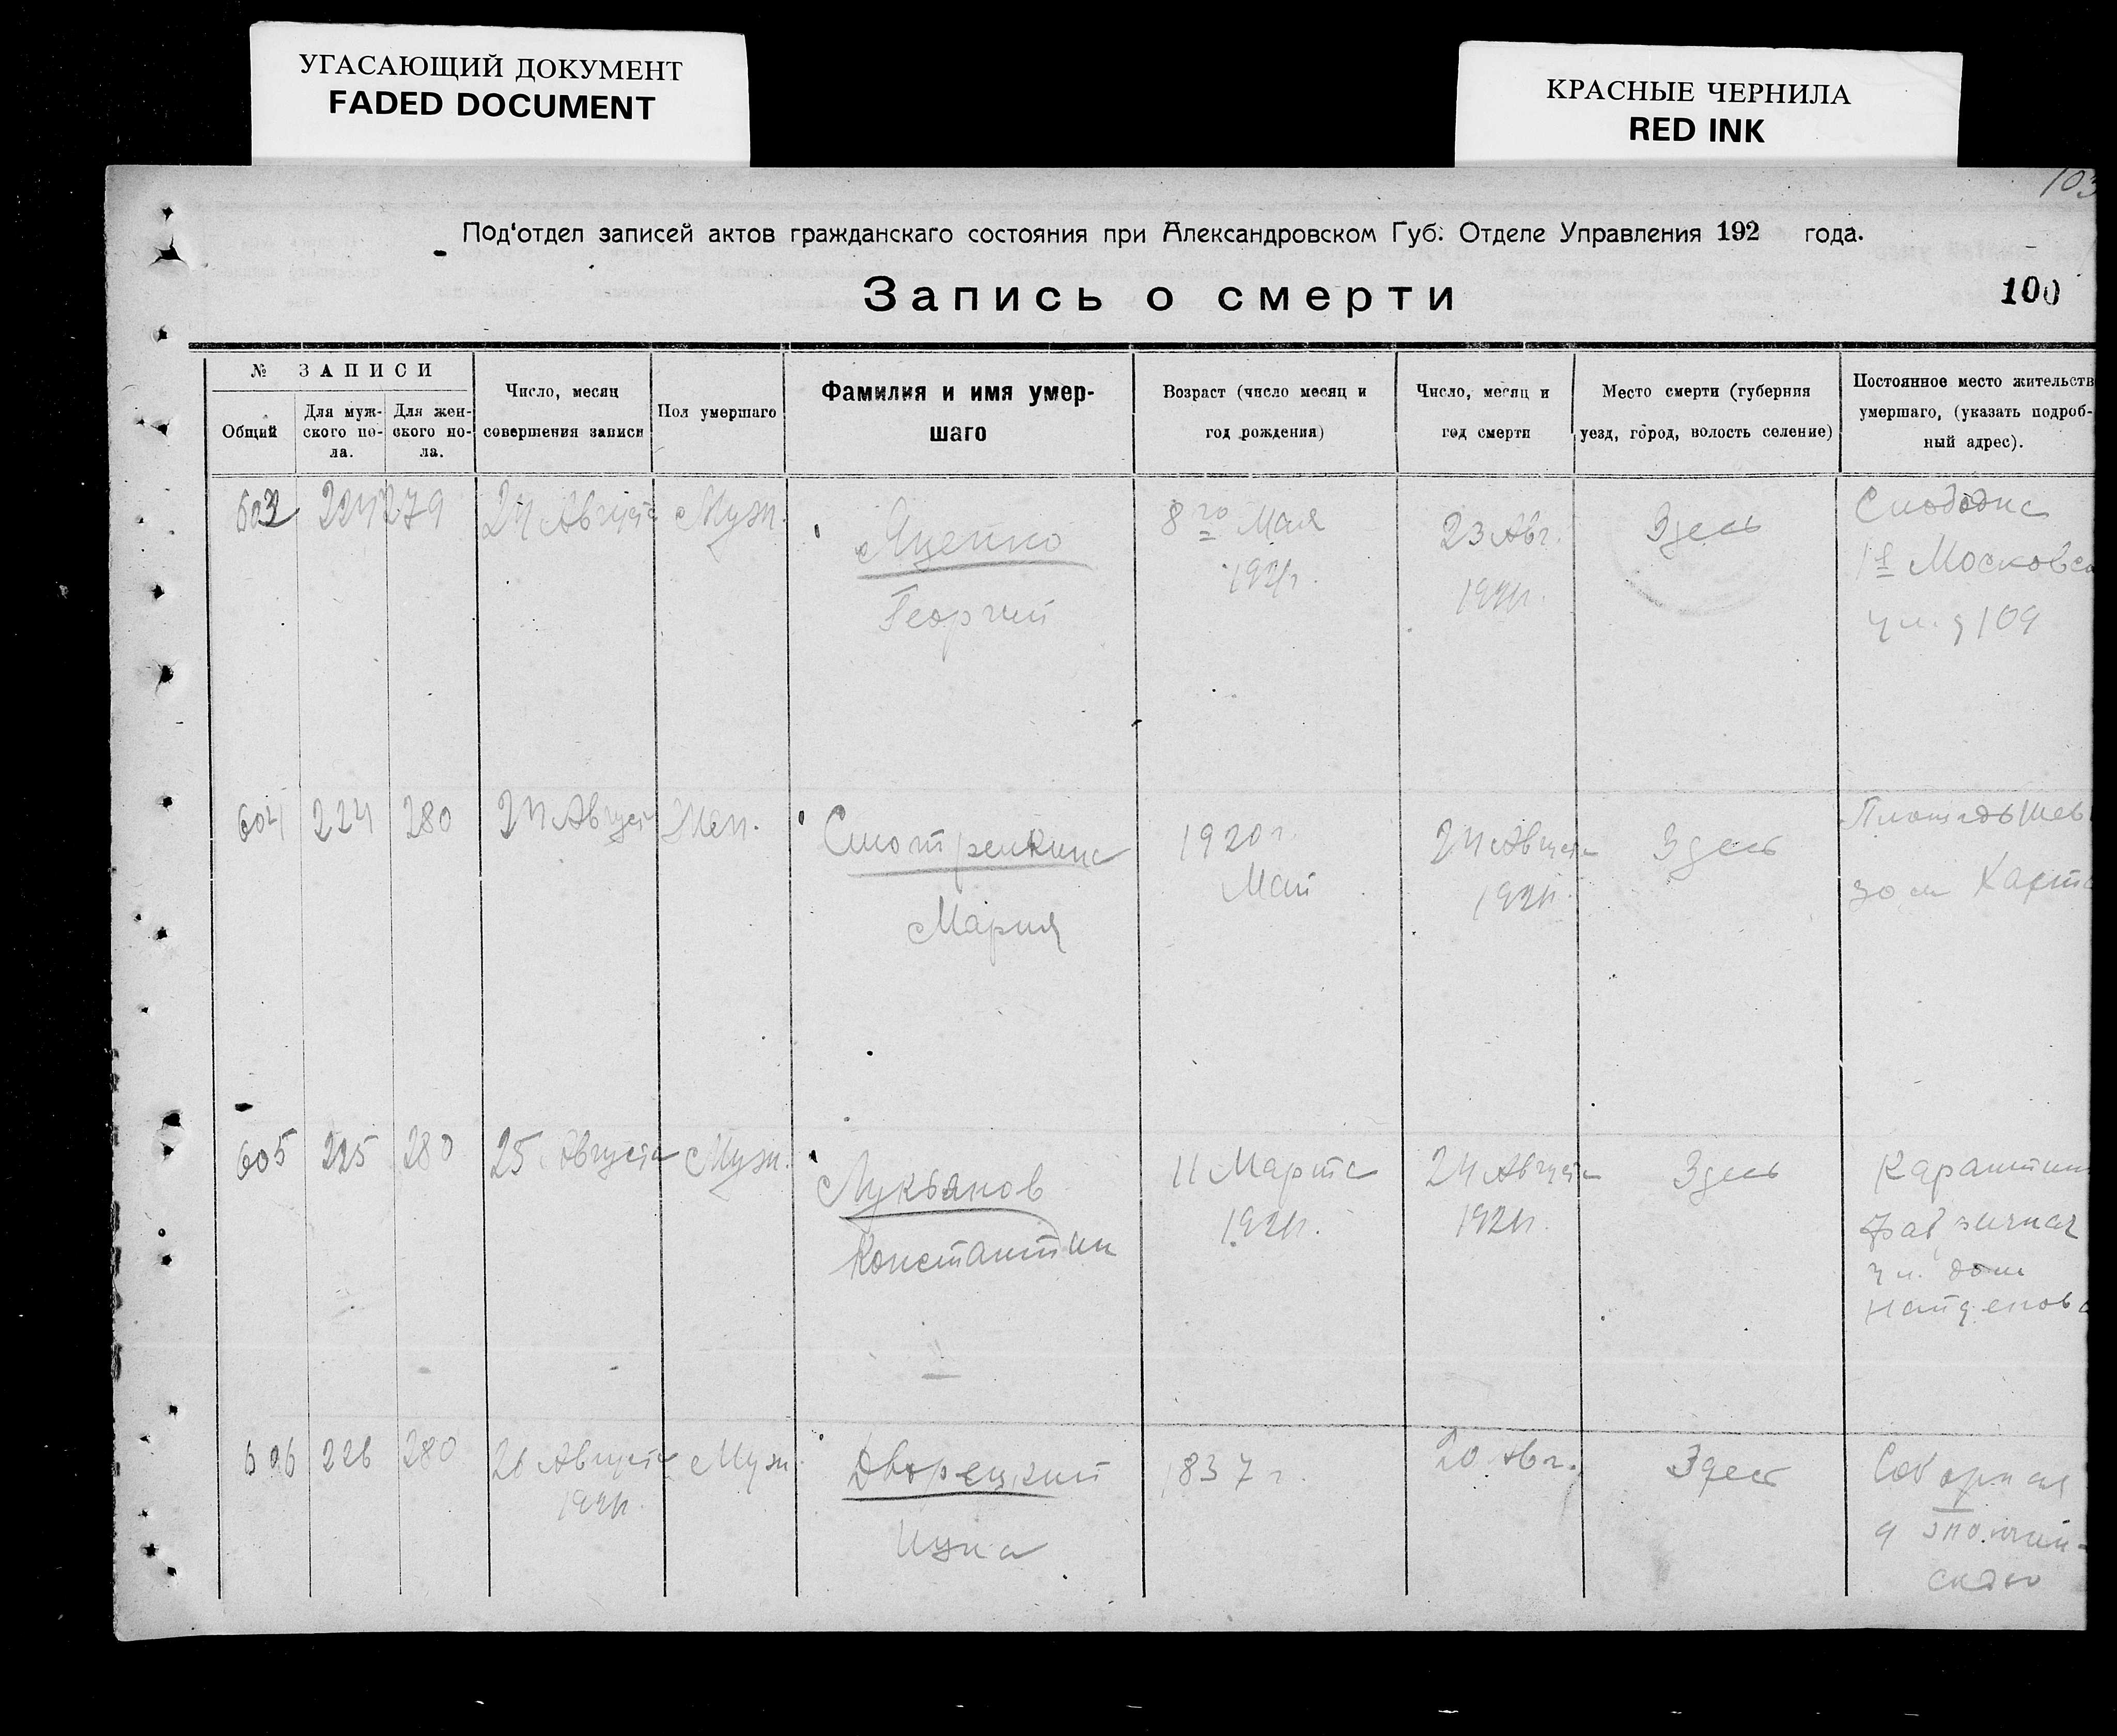 УГАСАЮЩИЙ ДОКУМЕНТ
FADED DOCUMENT
КРАСНЫЕ ЧЕРНИЛА
RED INK
103
Под‘отдел записей актов гражданскаго состояния при Александровском Губ. Отделе Управления 192 года.
Запись о смерти
100
№ ЗАПИСИ
Общий
Для муж-
ского по-
ла.
Для жен-
ского по-
ла.
Число, месяц
совершения записи
Пол умершаго
Фамилия и имя умер-
шаго
Возраст (число месяц и
год рождения)
Число, месяц и
год смерти
Место смерти (губерния
уезд, город, волость селение)
Постоянное место жительств
умершаго, (указать подроб-
ный адрес).
603 224 279 24 Августа Муж.
Яценко
Георгий
8го Мая
1921г.
23 Авг.
1921г.
Здесь
Слободка
1я Московск
ул. д 109
604 224 280 24 Август Жен.
Смотренкина
Мария
1920г.
Май
24 Августа
1921г.
Здесь
Площадь Шев
дом
605 225 280 25 Августа Муж.
Лукьянов
Константин
11 Марта
1921г.
24 Августа
1921г.
Здесь
Карантин
Фабричная
ул. дом
Найденова
606 226 280 26 Августа Муж.
1921г.
Дворецкий
1837 г.
20 Авг.
Здесь
Соборная